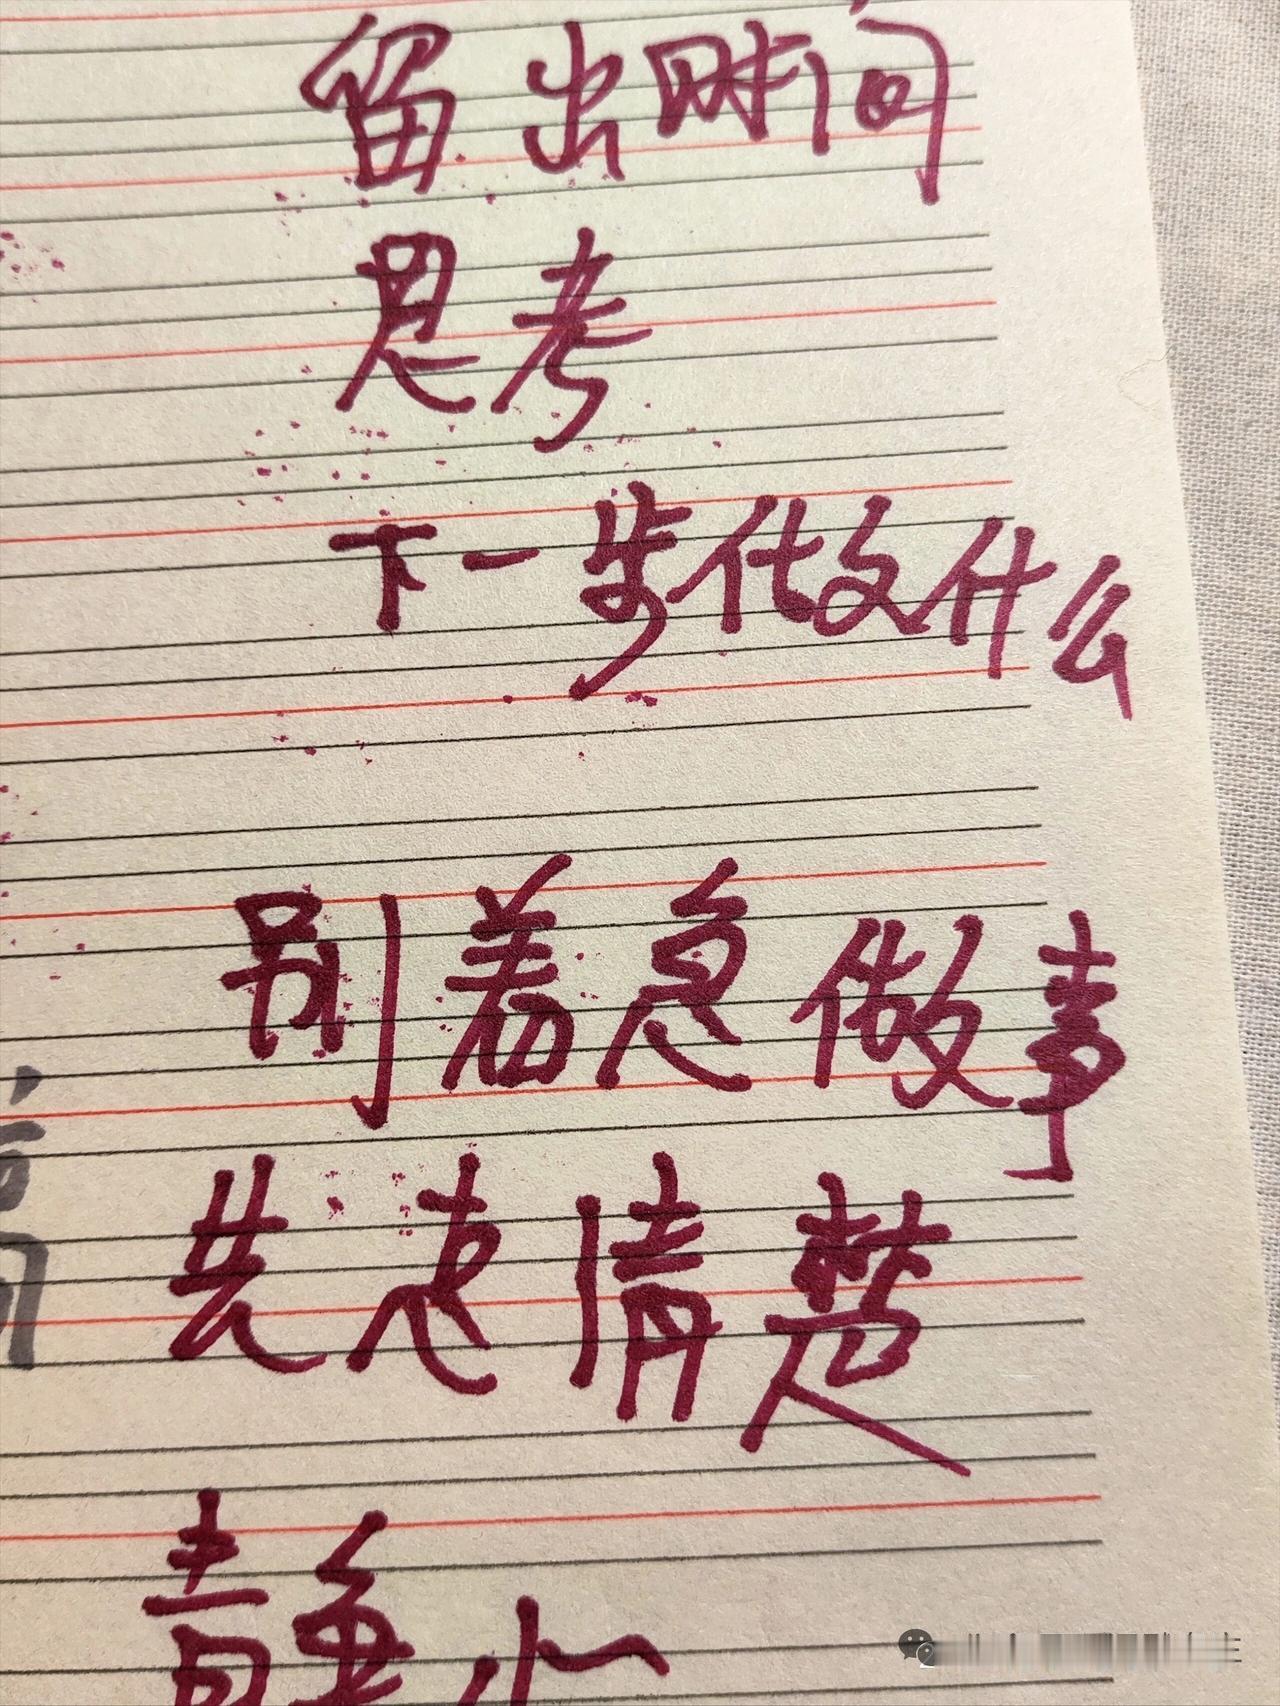 留出时间
思考
下一步做什么
别着急做事
先 清楚
静心